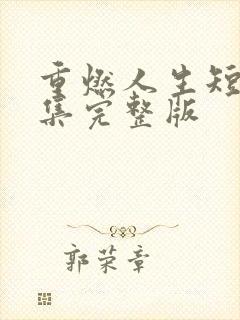 重燃人生短
集完整版
郭荣章